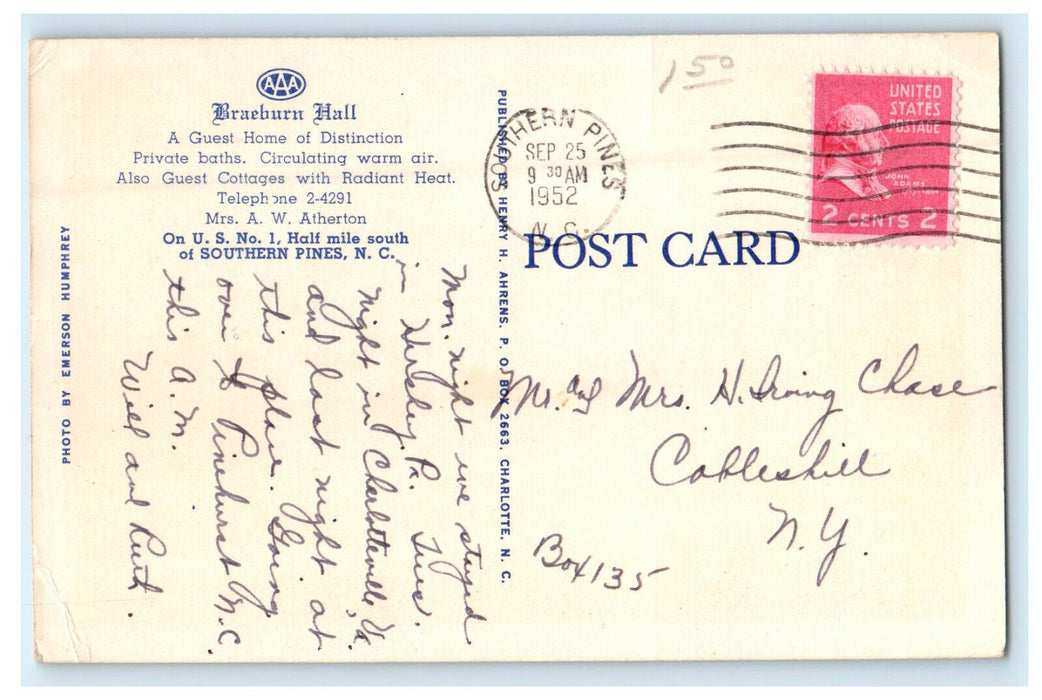 AAA
Braeburn Hall
A Guest Home of Distinction
Private baths. Circulating warm air.
Also Guest Cottages with Radiant Heat.
Telephone 2-4291
Mrs. A. W. Atherton
On U. S. No. 1, Half mile south
of SOUTHERN PINES, N. C.
PHOTO BY EMERSON HUMPHREY
Mon. night we stayed
in Hershey, Pa. Tues.
night in Charlottesville, Va.
and last night at
this place. Going
over to Pinehurst N.C.
this A.M.
Will and Ruth.
PUBLISHED BY HENRY H. AHRENS, P. O. BOX 2663, CHARLOTTE, N. C.
1 50
SOUTHERN PINES
SEP 25
9 30 AM
1952
N. C.
UNITED
STATES
POSTAGE
JOHN
ADAMS
2 CENTS 2
POST CARD
Mr. and Mrs. H. Irving Chase
Cobleskill
N.Y.
Box 135